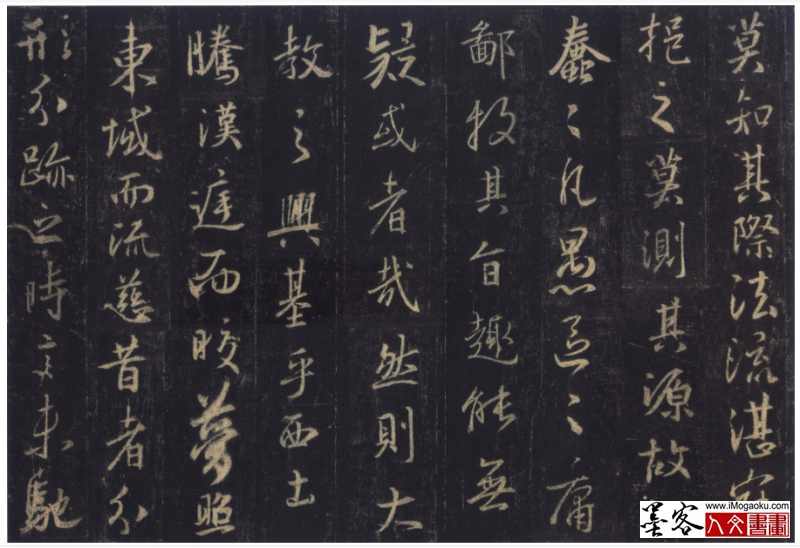 莫知其際法流湛
挹之莫測其源故
蠢〻凡愚區〻庸
鄙投其旨趣能無
疑或者哉然則大
教之興基乎西土
騰漢庭而皎夢照
東域而流慈昔者分
形分跡之時言未馳
墨客
www.iMogaoku.com
人文書畫